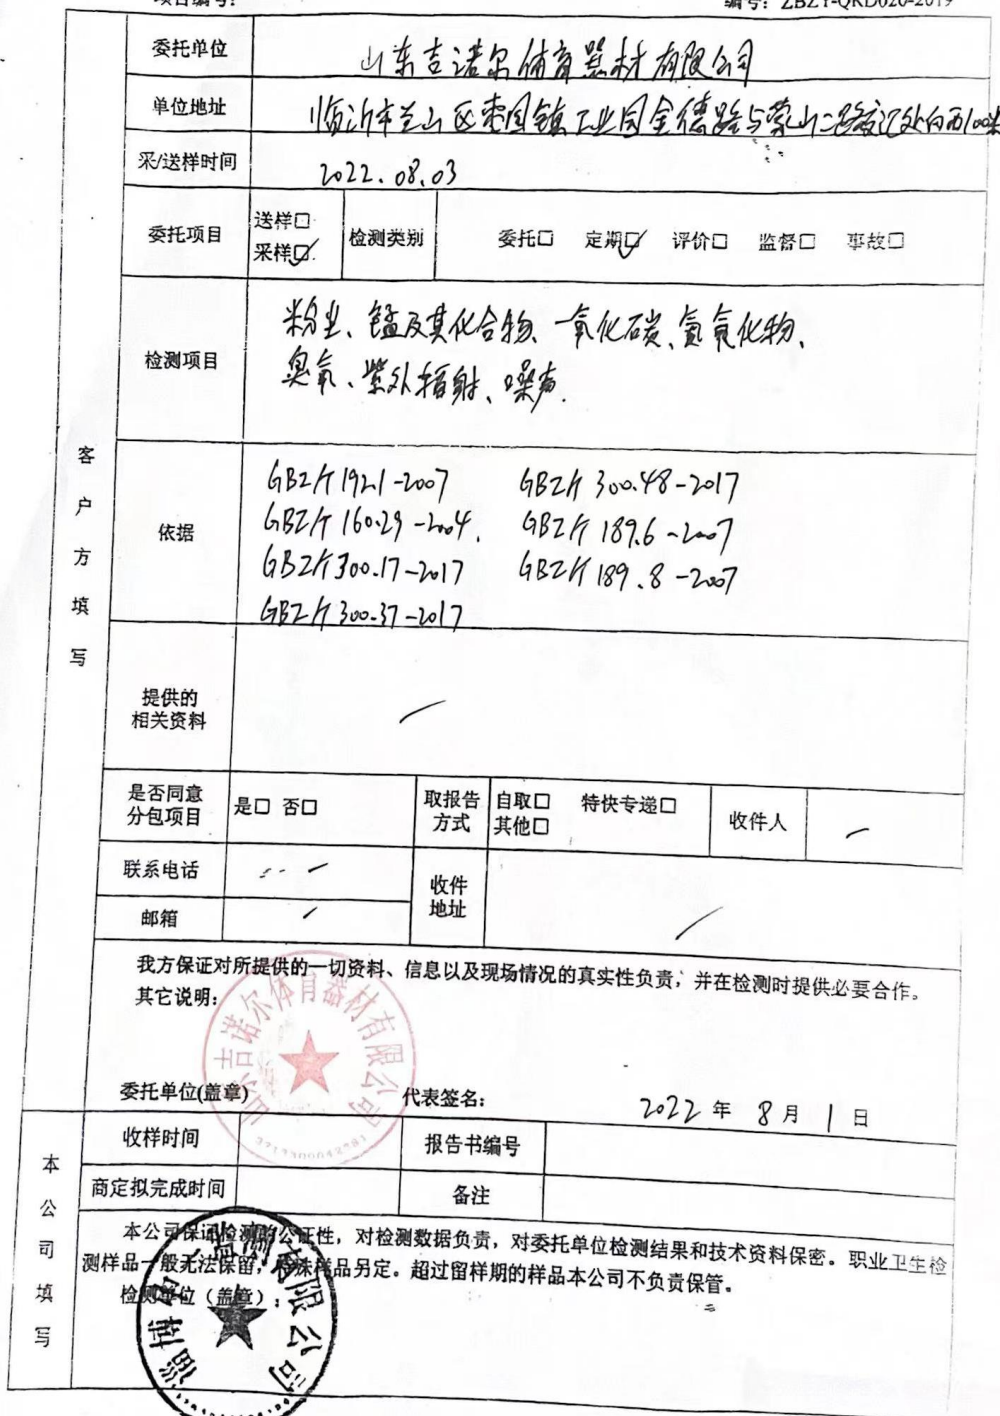 项目编号：
编号：ZBZY-QRD020-2019
委托单位 山东吉诺尔体育器材有限公司
单位地址 临沂市兰山区枣园镇工业园金德路与蒙山二路交汇处向西100米
采/送样时间 2022.08.03
委托项目 送样□ 采样☑ 检测类别 委托□ 定期☑ 评价□ 监督□ 事故□
检测项目
粉尘、锰及其化合物、一氧化碳、氮氧化物、
臭氧、紫外辐射、噪声.
客户方填写
依据
GBZ/T 192.1-2007 GBZ/T 300.48-2017
GBZ/T 160.29-2004. GBZ/T 189.6-2007
GBZ/T 300.17-2017 GBZ/T 189.8-2007
GBZ/T 300.37-2017
提供的
相关资料
是否同意
分包项目
是□ 否□
取报告
方式
自取□ 特快专递□
其他□
收件人
联系电话
收件
地址
邮箱
我方保证对所提供的一切资料、信息以及现场情况的真实性负责，并在检测时提供必要合作。
其它说明：
山东吉诺尔体育器材有限公司
委托单位(盖章)
代表签名：
2022年8月1日
本公司填写
收样时间 报告书编号
商定拟完成时间 备注
本公司保证检测的公证性，对检测数据负责，对委托单位检测结果和技术资料保密。职业卫生检
测样品一般无法保留，特殊样品另定。超过留样期的样品本公司不负责保管。
检测单位（盖章）：
淄博 检测有限公司